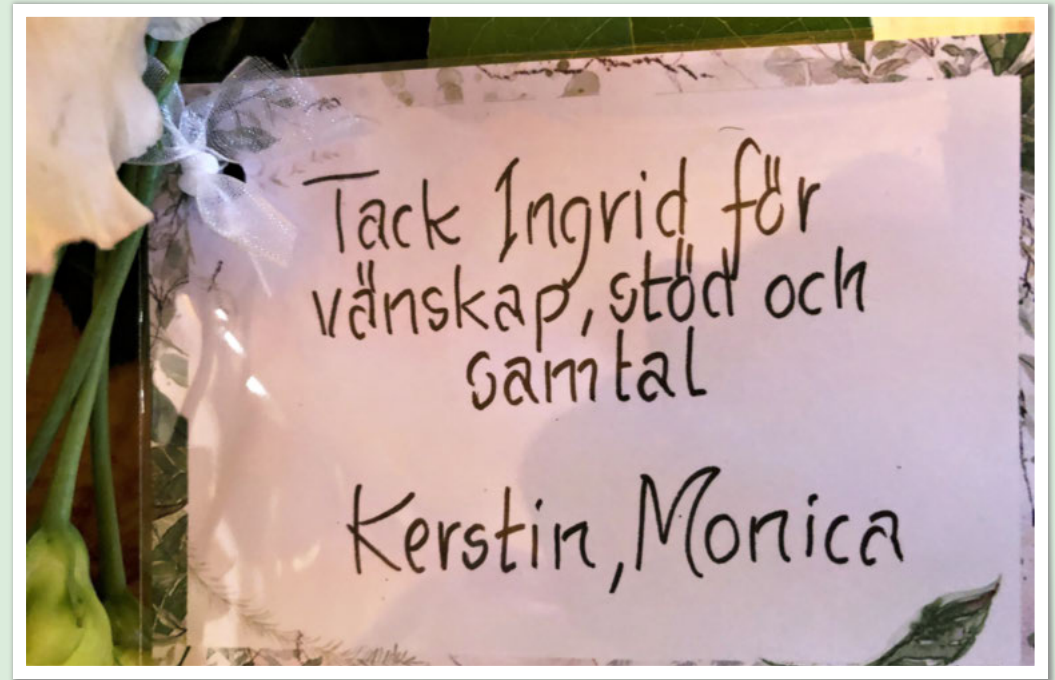 Tack Ingrid för
vänskap, stöd och
samtal
Kerstin, Monica